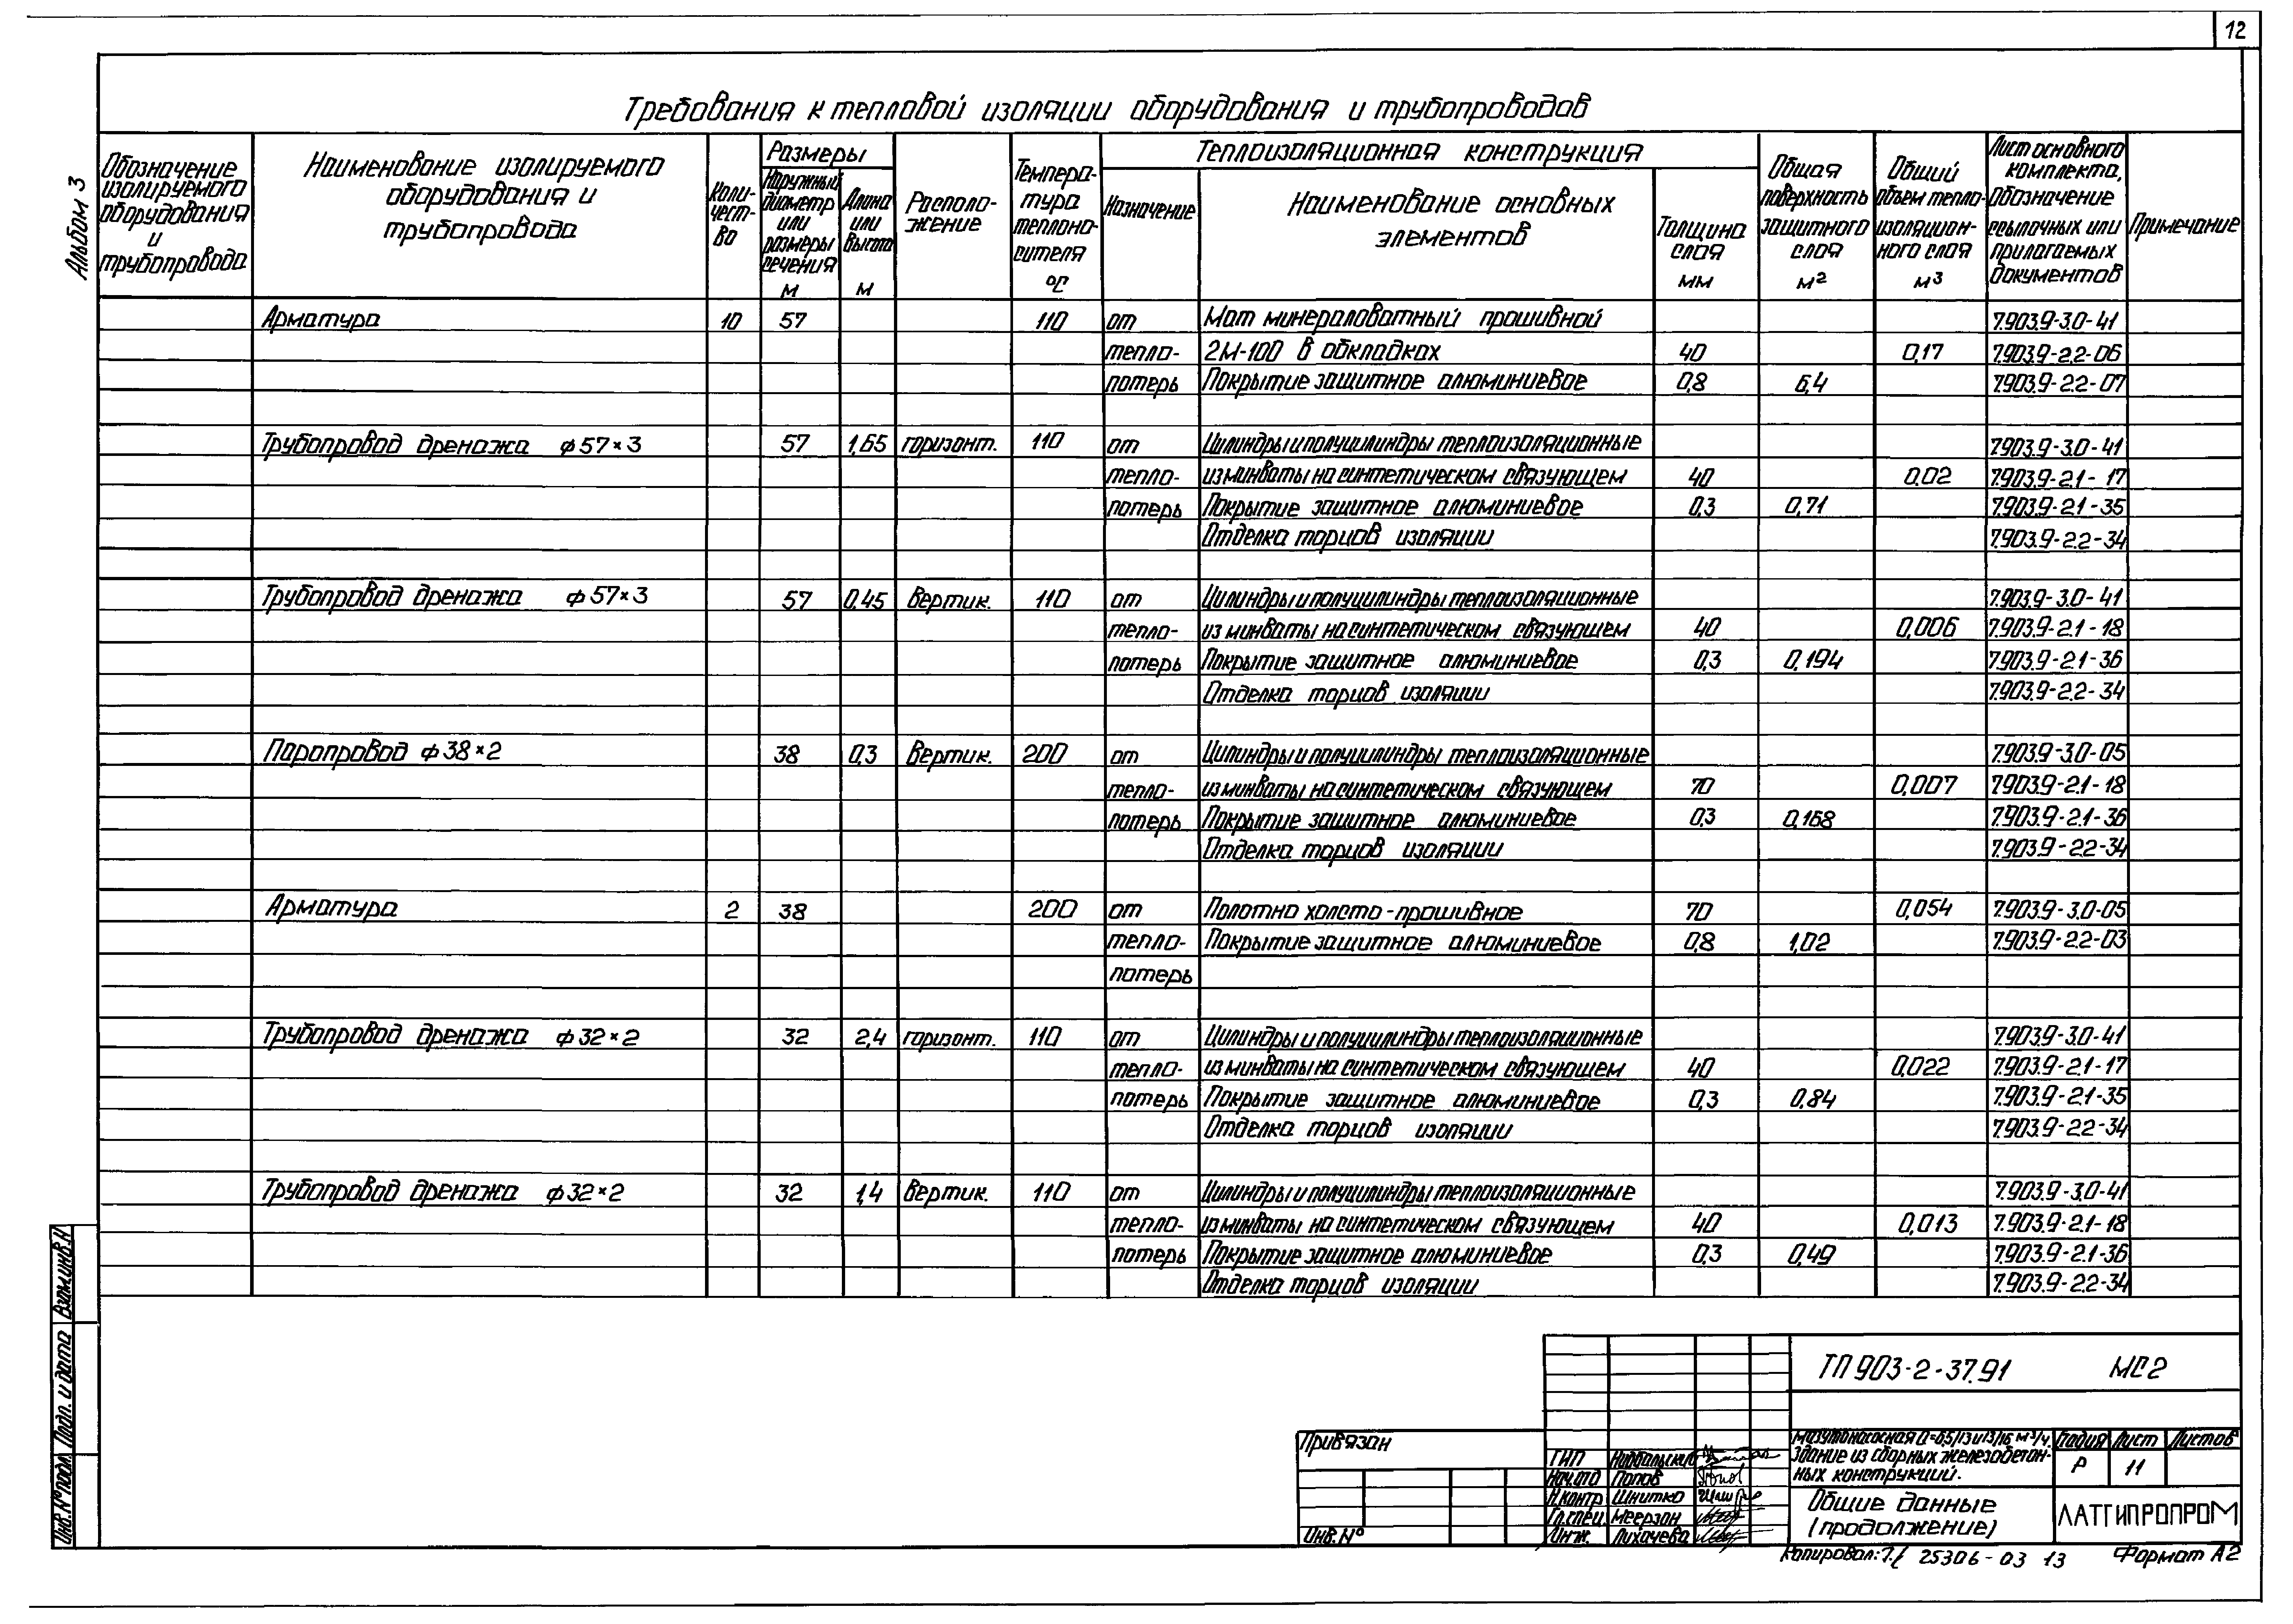 12
Альбом 3
Требования к тепловой изоляции оборудования и трубопроводов
Обозначение изолируемого оборудования и трубопровода
Наименование изолируемого оборудования и трубопровода
Коли-чест-во
Размеры
Наружный диаметр или размеры сечения м
Длина или высота м
Располо-жение
Темпера-тура теплоно-сителя °С
Теплоизоляционная конструкция
Назначение
Наименование основных элементов
Толщина слоя мм
Общая поверхность защитного слоя м²
Общий объем тепло-изоляцион-ного слоя м³
Лист основного комплекта, обозначение ссылочных или прилагаемых документов
Примечание
Арматура 10 57 110 от Мат минераловатный прошивной 7.903.9-3.0-41
тепло- 2М-100 в обкладках 40 0,17 7.903.9-2.2-06
потерь Покрытие защитное алюминиевое 0,8 6,4 7.903.9-2.2-07
Трубопровод дренажа ф57×3 57 1,65 горизонт. 110 от Цилиндры и полуцилиндры теплоизоляционные 7.903.9-3.0-41
тепло- из минваты на синтетическом связующем 40 0,02 7.903.9-2.1-17
потерь Покрытие защитное алюминиевое 0,3 0,71 7.903.9-2.1-35
Отделка торцов изоляции 7.903.9-2.2-34
Трубопровод дренажа ф57×3 57 0,45 Вертик. 110 от Цилиндры и полуцилиндры теплоизоляционные 7.903.9-3.0-41
тепло- из минваты на синтетическом связующем 40 0,006 7.903.9-2.1-18
потерь Покрытие защитное алюминиевое 0,3 0,194 7.903.9-2.1-36
Отделка торцов изоляции 7.903.9-2.2-34
Паропровод ф38×2 38 0,3 Вертик. 200 от Цилиндры и полуцилиндры теплоизоляционные 7.903.9-3.0-05
тепло- из минваты на синтетическом связующем 70 0,007 7.903.9-2.1-18
потерь Покрытие защитное алюминиевое 0,3 0,168 7.903.9-2.1-36
Отделка торцов изоляции 7.903.9-2.2-34
Арматура 2 38 200 от Полотно холсто-прошивное 70 0,054 7.903.9-3.0-05
тепло- Покрытие защитное алюминиевое 0,8 1,02 7.903.9-2.2-03
потерь
Трубопровод дренажа ф32×2 32 2,4 горизонт. 110 от Цилиндры и полуцилиндры теплоизоляционные 7.903.9-3.0-41
тепло- из минваты на синтетическом связующем 40 0,022 7.903.9-2.1-17
потерь Покрытие защитное алюминиевое 0,3 0,84 7.903.9-2.1-35
Отделка торцов изоляции 7.903.9-2.2-34
Трубопровод дренажа ф32×2 32 1,4 Вертик. 110 от Цилиндры и полуцилиндры теплоизоляционные 7.903.9-3.0-41
тепло- из минваты на синтетическом связующем 40 0,013 7.903.9-2.1-18
потерь Покрытие защитное алюминиевое 0,3 0,49 7.903.9-2.1-36
Отделка торцов изоляции 7.903.9-2.2-34
Взам.инв.N
Подп. и дата
Инв.N°подл.
ТП 903-2-37.91 МС2
Привязан
Инв.N°
ГИП
Нач.отд Попов
Н.контр Шнитко
Гл.спец. Меерзон
Инж. Лихачева
Мазутонасосная Q=6,5/13 и 13/16 м³/ч.
Здание из сборных железобетон-
ных конструкций.
Стадия Лист Листов
Р 11
Общие данные
(продолжение)
ЛАТГИПРОПРОМ
Копировал: 25306-03 13 Формат А2